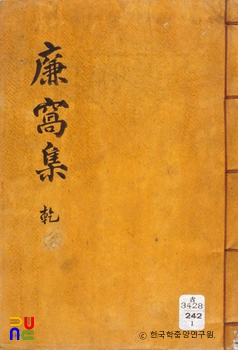 廉窩集
乾
古
3428
242
1
PUNC
© 한국학중앙연구원.